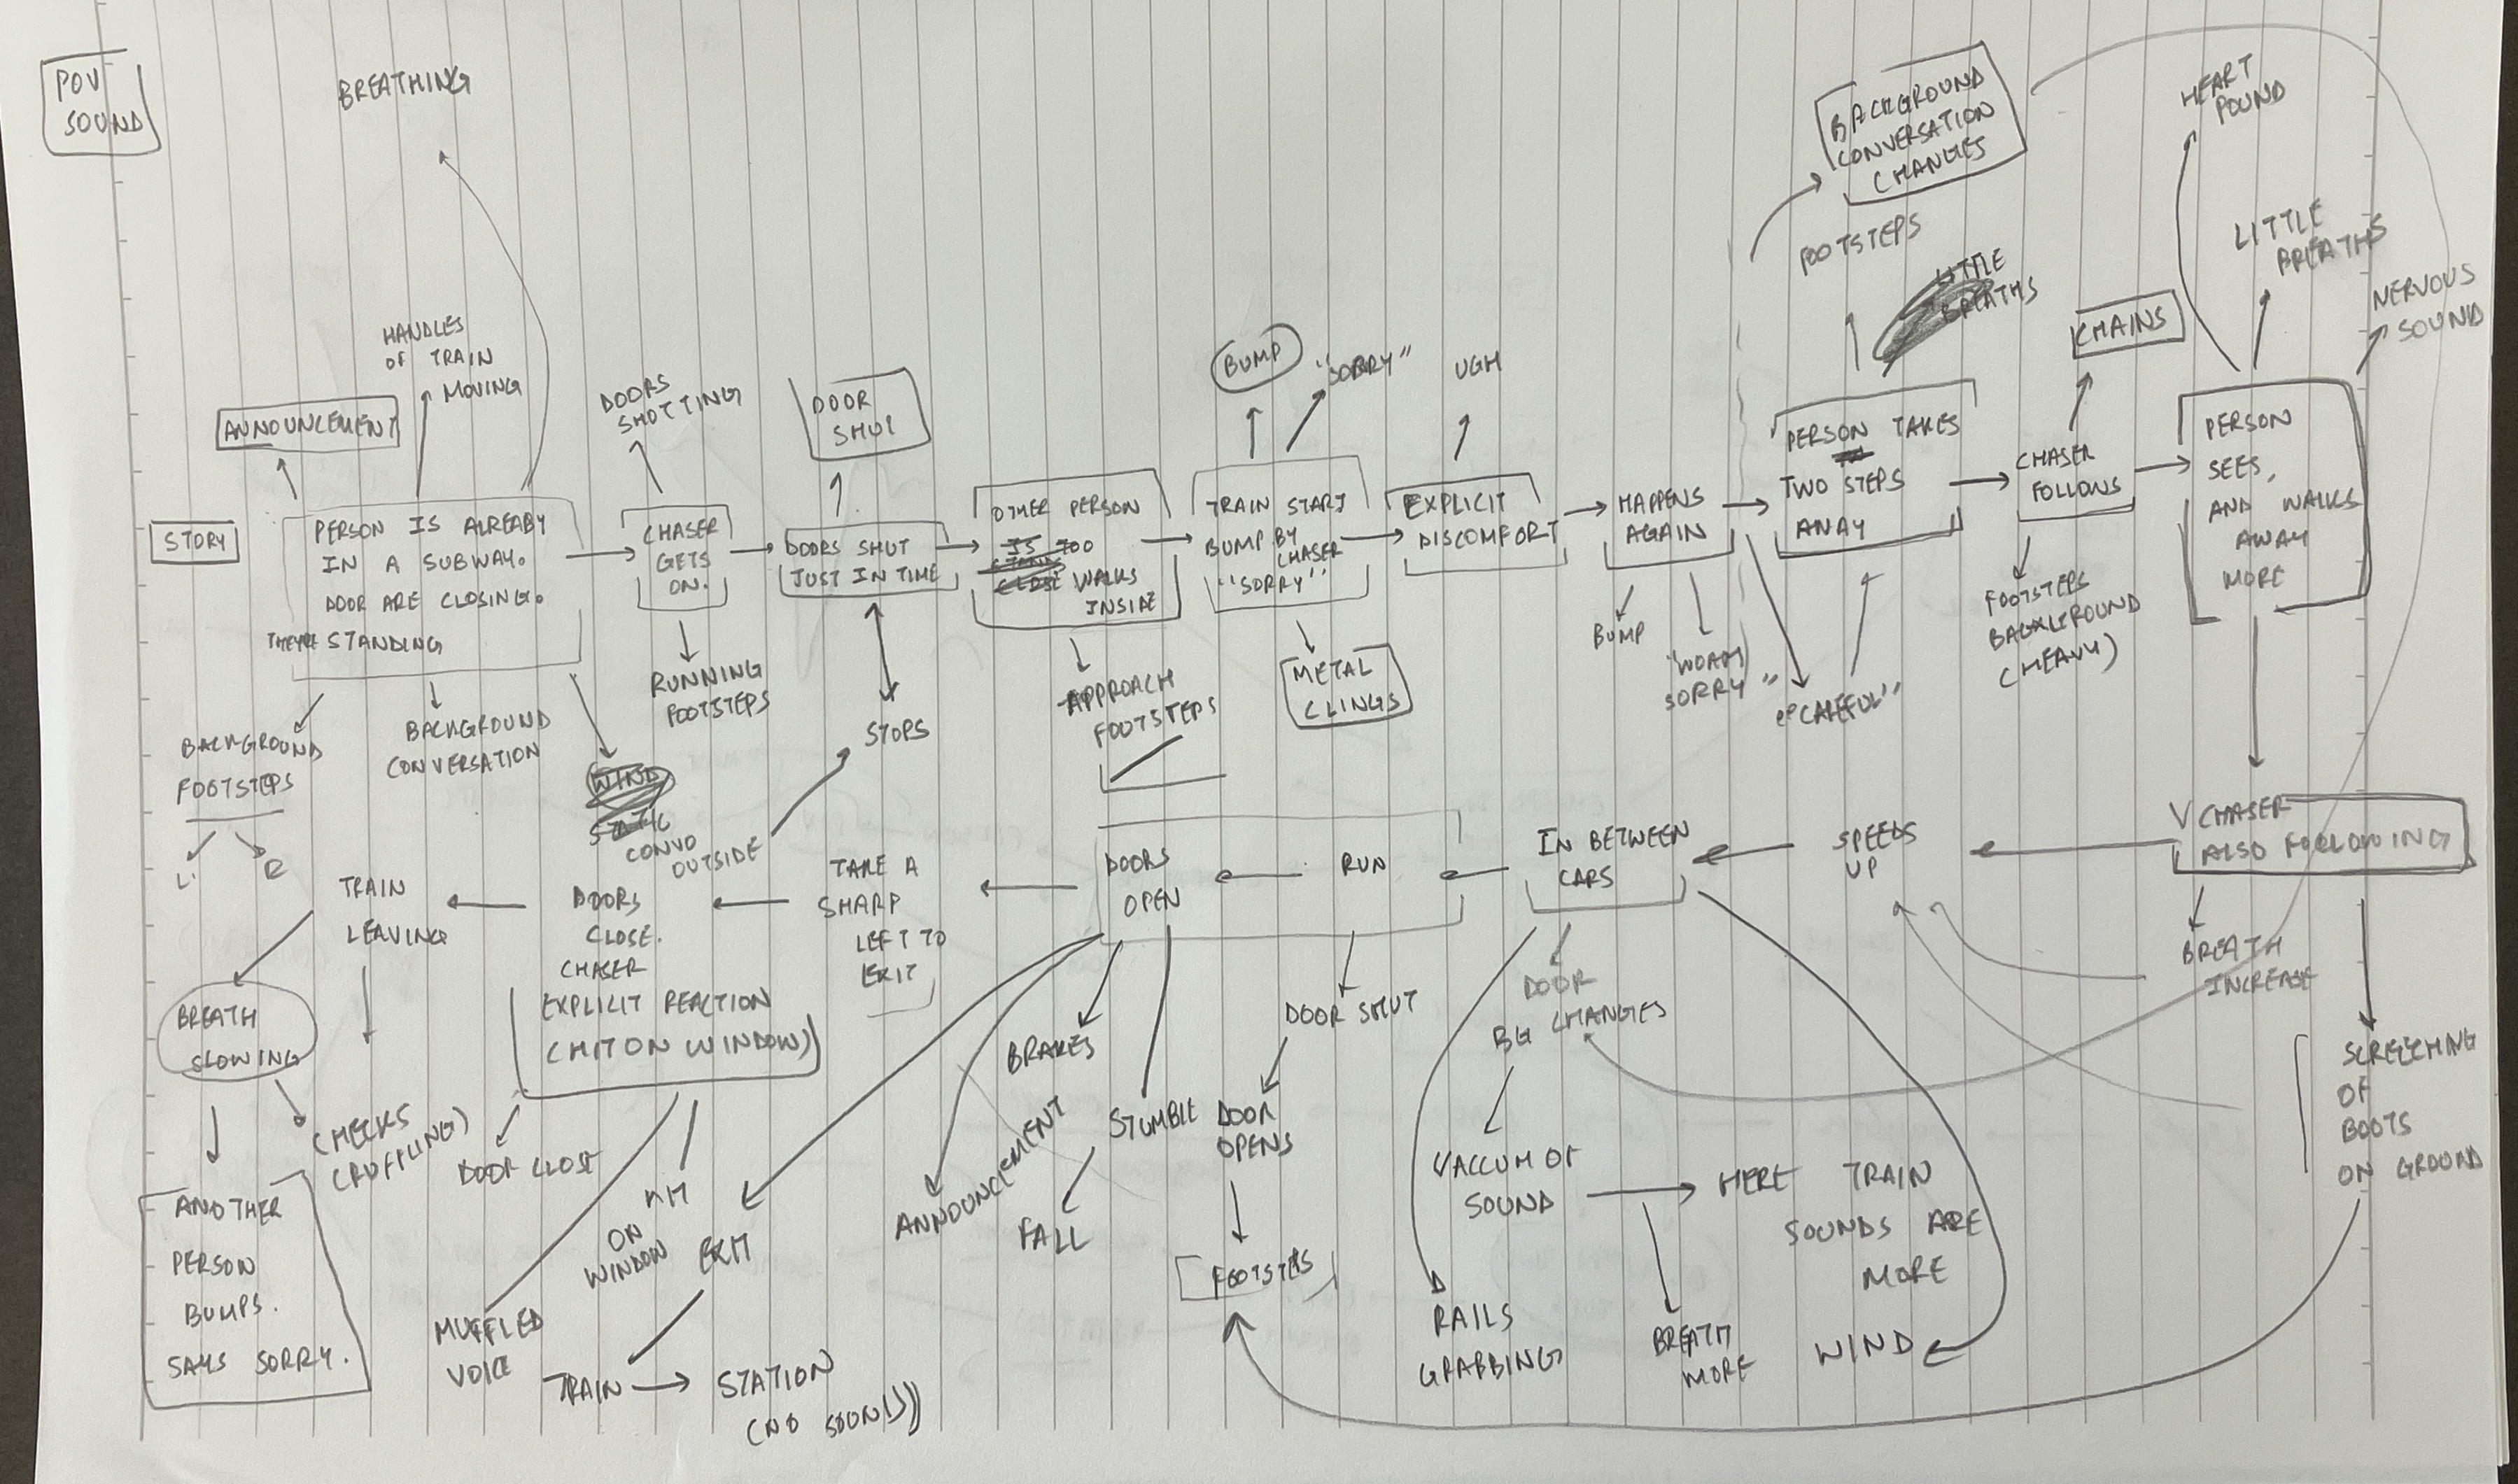 POV
SOUND
BREATHING
BACKGROUND
CONVERSATION
CHANGES
HEART
POUND
LITTLE
BREATHS
NERVOUS
SOUND
FOOTSTEPS
LITTLE
BREATHS
CHAINS
HANDLES
OF TRAIN
MOVING
ANNOUNCEMENT
DOORS
SHUTTING
DOOR
SHUT
BUMP
"SORRY"
UGH
STORY
PERSON IS ALREADY
IN A SUBWAY.
DOOR ARE CLOSING.
THEY'RE STANDING
CHASER
GETS
ON.
DOORS SHUT
JUST IN TIME
OTHER PERSON
IS TOO
CLOSE WALKS
INSIDE
TRAIN START
BUMP BY
CHASER
"SORRY"
EXPLICIT
DISCOMFORT
HAPPENS
AGAIN
PERSON TAKES
TWO STEPS
AWAY
CHASER
FOLLOWS
PERSON
SEES,
AND WALKS
AWAY
MORE
BACKGROUND
FOOTSTEPS
L
R
BACKGROUND
CONVERSATION
WIND
STATIC
CONVO
OUTSIDE
RUNNING
FOOTSTEPS
STOPS
APPROACH
FOOTSTEPS
METAL
CLINGS
BUMP
"WOAH
SORRY"
"CAREFUL"
FOOTSTEPS
BACKGROUND
(HEAVY)
CHASER
ALSO FOLLOWING
SPEEDS
UP
IN BETWEEN
CARS
RUN
DOORS
OPEN
TAKE A
SHARP
LEFT TO
EXIT
DOORS
CLOSE.
CHASER
EXPLICIT REACTION
(HIT ON WINDOW)
TRAIN
LEAVING
BREATH
SLOWING
CHECKS
(RUFFLING)
ANOTHER
PERSON
BUMPS.
SAYS SORRY.
DOOR CLOSE
HIT
ON
WINDOW
MUFFLED
VOICE
TRAIN
STATION
(NO SOUND)
BRAKES
ANNOUNCEMENT
STUMBLE
FALL
DOOR SHUT
DOOR
OPENS
FOOTSTEPS
DOOR
BG CHANGES
VACCUM OF
SOUND
HERE TRAIN
SOUNDS ARE
MORE
RAILS
GRABBING
BREATH
MORE
WIND
BREATH
INCREASE
SCREECHING
OF
BOOTS
ON GROUND